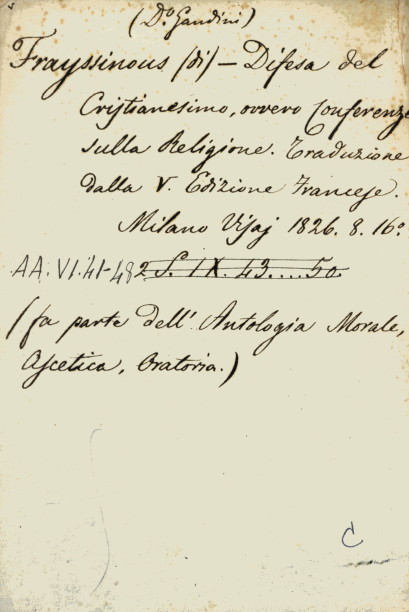 (D.º Gandini)
Frayssinous (di) – Difesa del
Cristianesimo, ovvero Conferenze
sulla Religione. Traduzione
dalla V. Edizione Francese.
Milano Visaj 1826. 8. 16º
AA. VI. 41-48 2 S. IX. 43....50.
(fa parte dell' Antologia Morale,
Ascetica, Oratoria.)
C